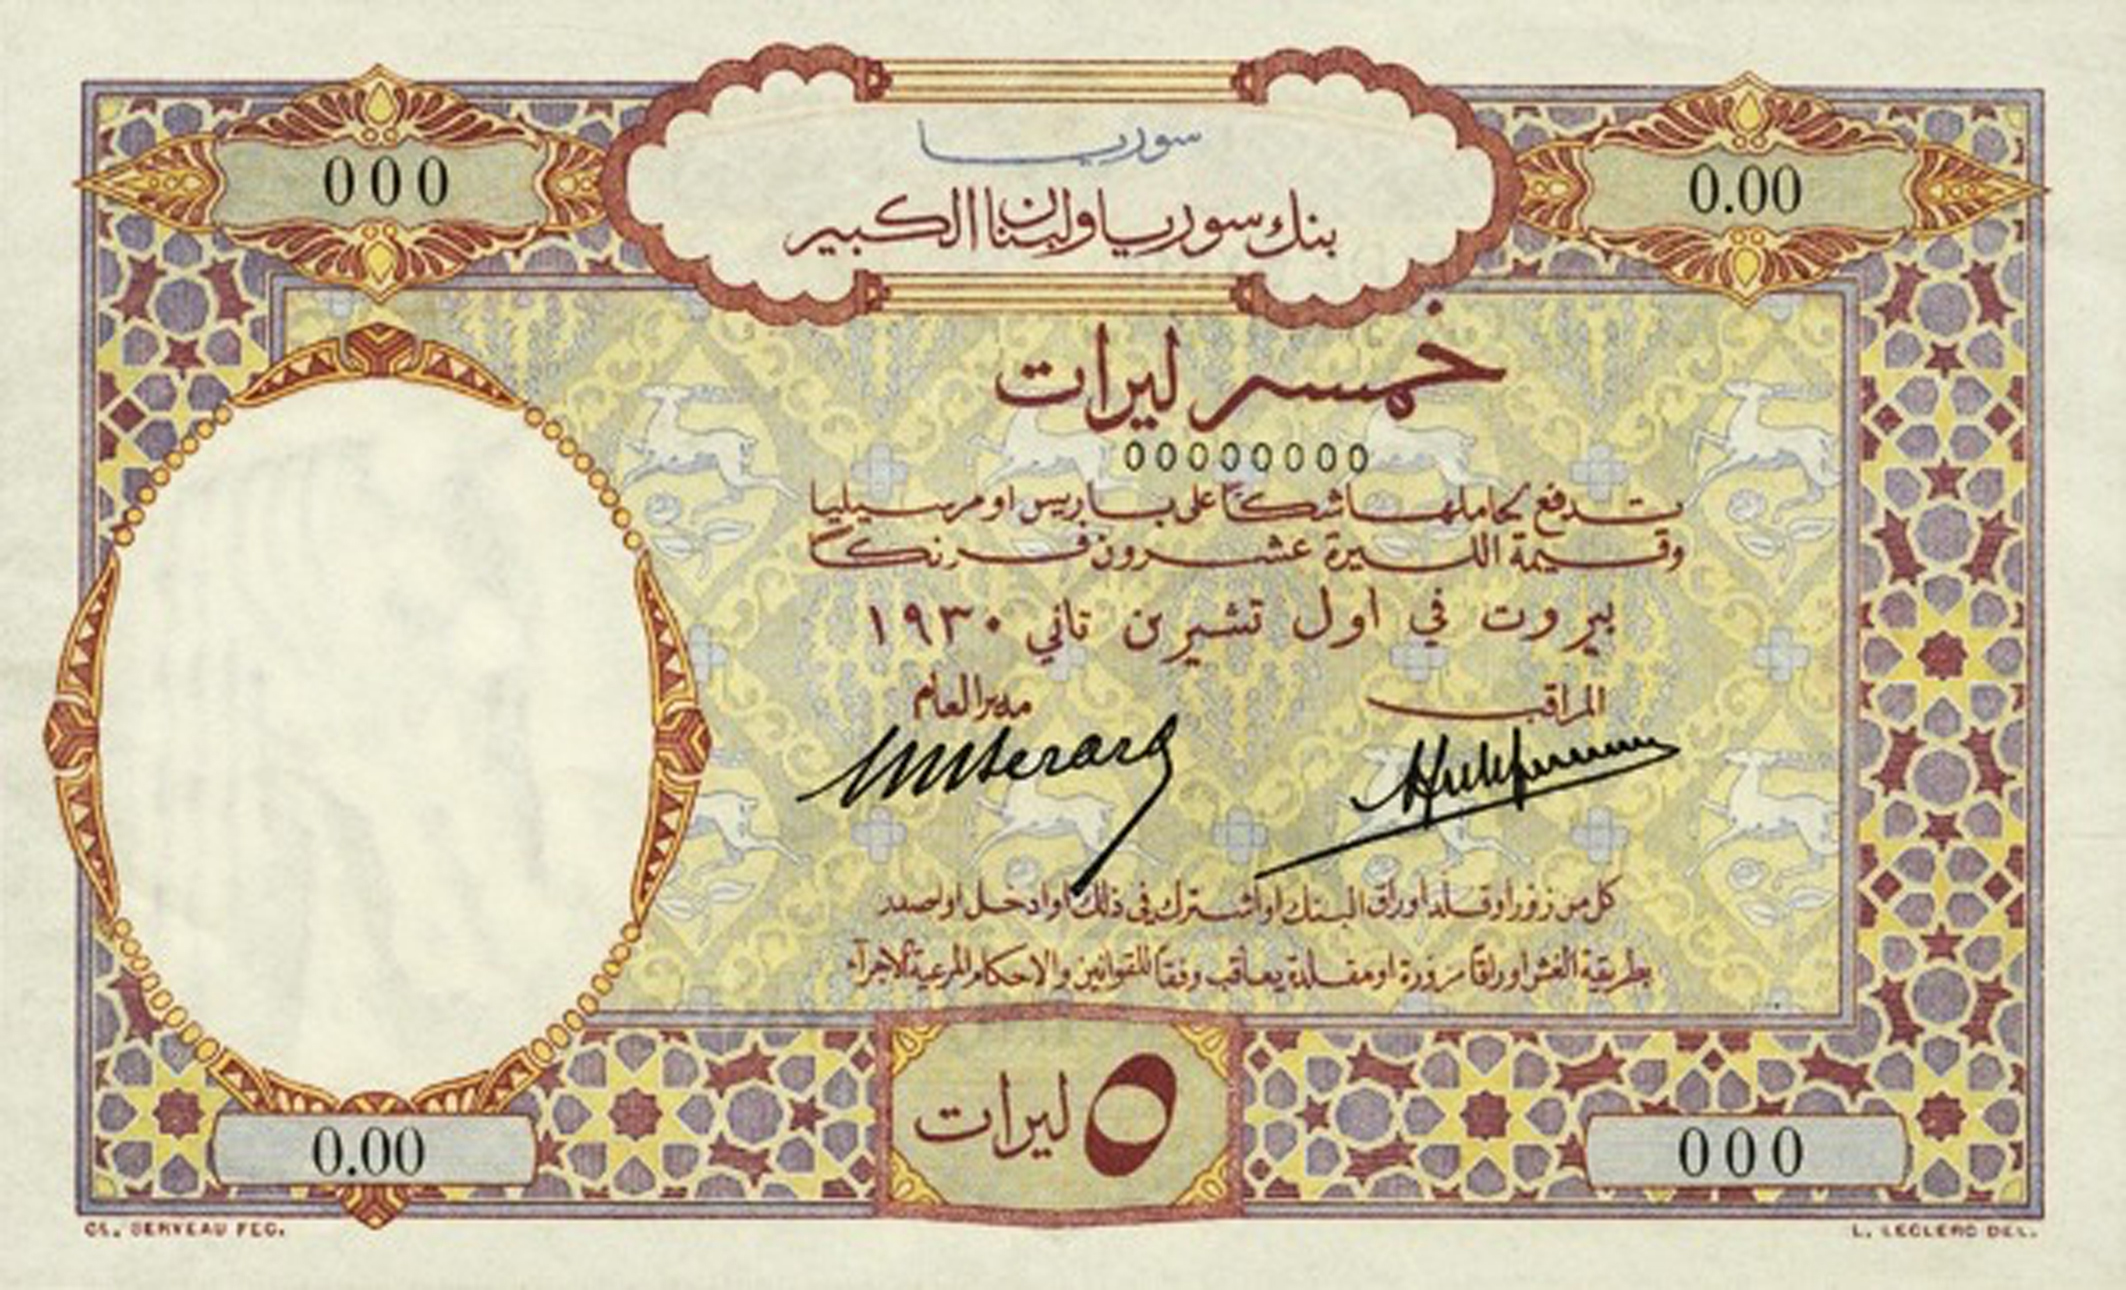 سوريا
بنك سوريا ولبنان الكبير
000
0.00
خمس ليرات
00000000
تدفع لحاملها شكًا على باريس او مرسيليا
وقيمة الليرة عشرون فرنكًا
بيروت في اول تشرين تاني ١٩٣٠
المراقب
مدير العام
كل من زور او قلد اوراق البنك او اشترك في ذلك او ادخل او اصدر
بطريقة الغش اوراقًا مزورة او مقلدة يعاقب وفقًا للقوانين والاحكام المرعية الاجرآء
٥ ليرات
0.00
000
CL. SERVEAU FEC.
L. LECLERC DEL.